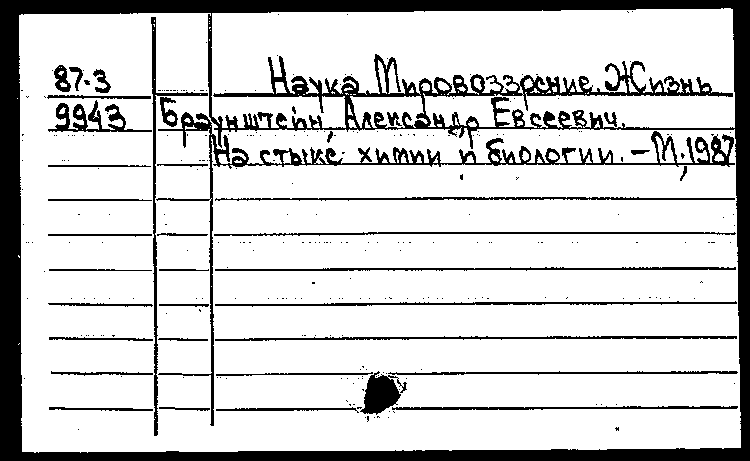 87.3 Наука. Мировоззрение. Жизнь
9943 Браунштейн, Александр Евсеевич.
На стыке химии и биологии. – М., 1987